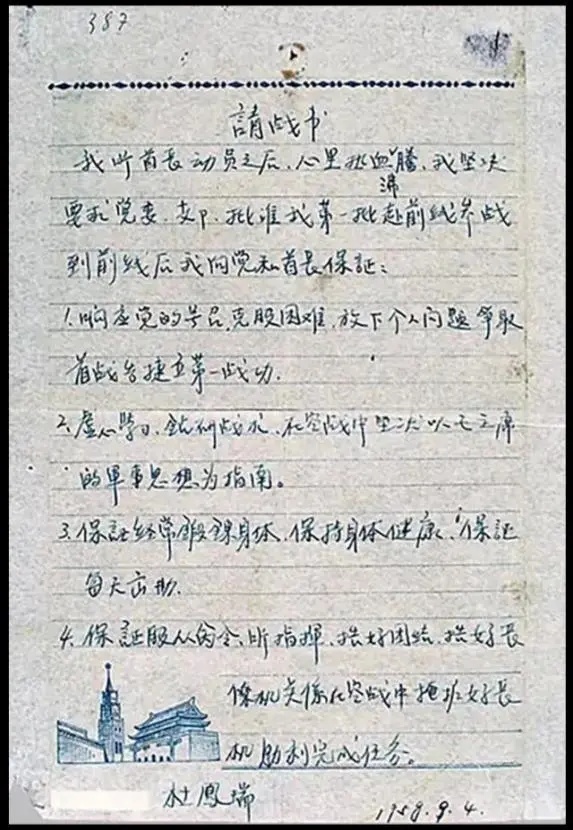 387
請战书
我听首长动员之后、心里热血腾,我坚决
沸
要求党委、支P、批准我第一批赴前线参战
到前线后我向党和首长保証:
1.响应党的号召,克服困难,放下个人问题争取
首战告捷立第一战功.
2.虚心學习、鈷研战术、在空战中坚决以毛主席
的軍事思想为指南。
3.保証经常鍛鍊身体、保持身体健康、保証
每天出勤.
4.保証服从命令、听指揮、搞好团结、搞好長
僚机关係在空战中掩护好長
机胜利完成任务。
杜鳳瑞
1958.9.4.